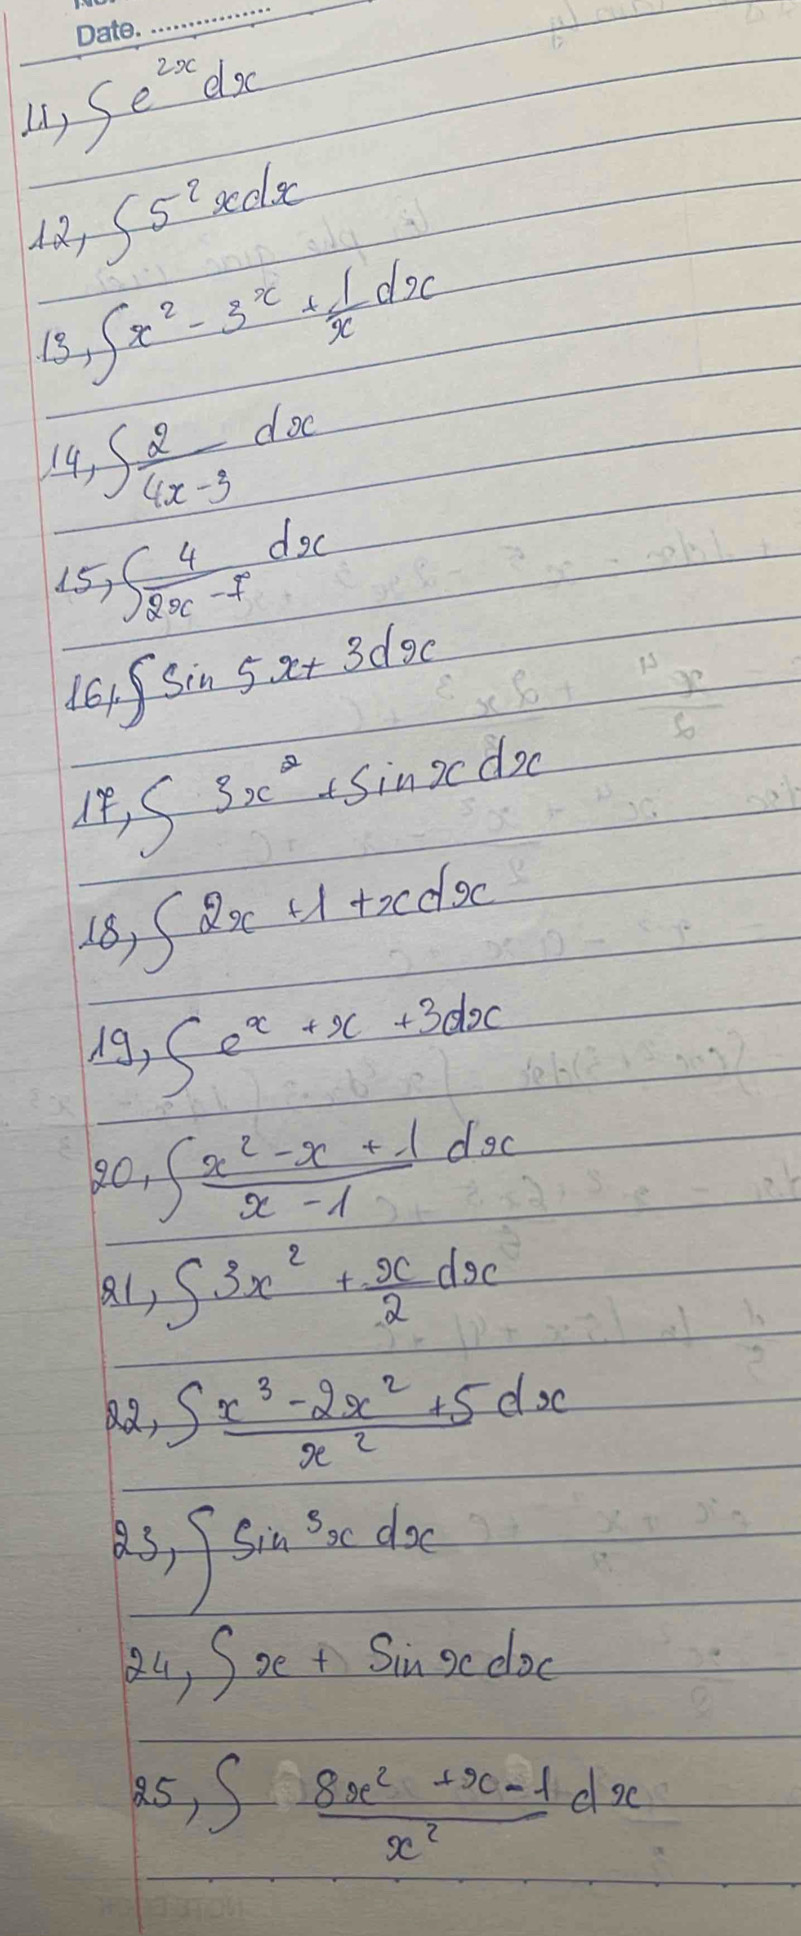 Date.
11, ∫ e^{2x} dx
12, ∫ 5^2 x dx
13, ∫ x^2 - 3^x + \frac{1}{x} dx
14, ∫ \frac{2}{4x - 3} dx
15, ∫ \frac{4}{2x - 7} dx
16, ∫ sin 5x + 3 dx
17, ∫ 3x^2 + sin x dx
18, ∫ 2x + 1 + x dx
19, ∫ e^x + x + 3 dx
20, ∫ \frac{x^2 - x + 1}{x - 1} dx
21, ∫ 3x^2 + \frac{x}{2} dx
22, ∫ \frac{x^3 - 2x^2 + 5}{x^2} dx
23, ∫ sin^3 x dx
24, ∫ x + sin x dx
25, ∫ \frac{8x^2 + x - 1}{x^2} dx